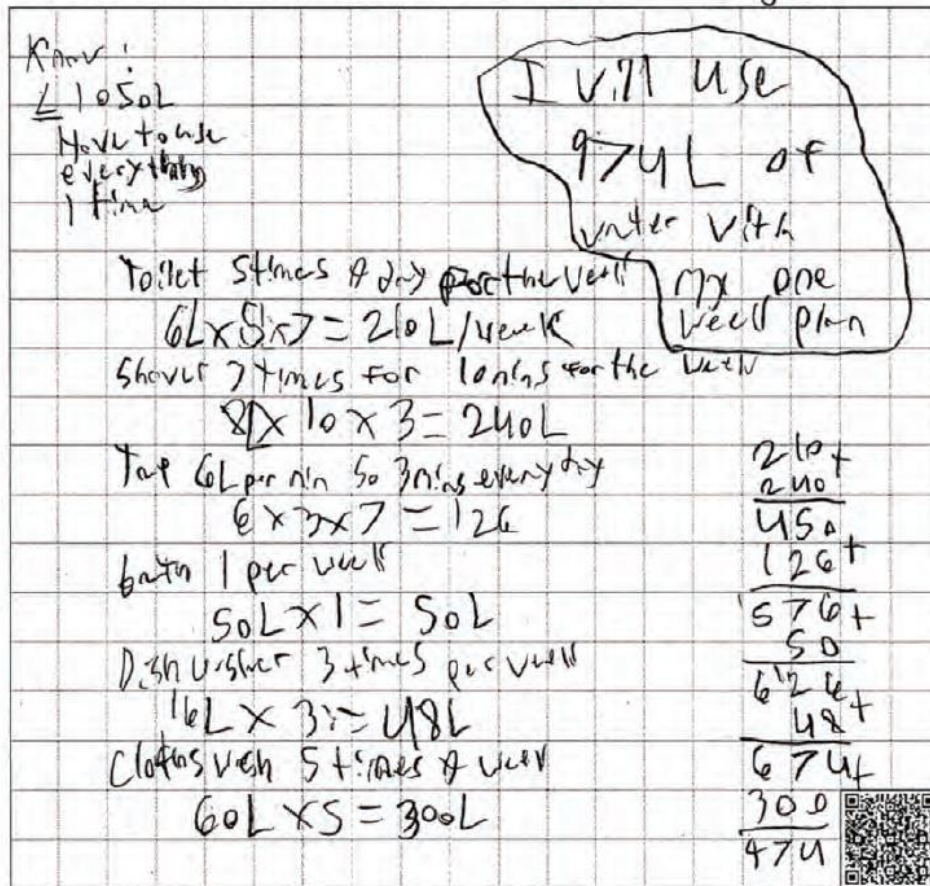 Know:
≤ 1050L
Have to use
everything
1 time
I will use
974L of
water with
my one
week plan
Toilet 5 times A day for the week
6L x 5 x 7 = 210L/week
Shower 3 times for 10 mins for the week
8L x 10 x 3 = 240L
Tap 6L per min so 3 mins every day
6 x 3 x 7 = 126
bath 1 per week
50L x 1 = 50L
Dish washer 3 times per week
16L x 3 = 48L
Clothes wash 5 times A week
60L x 5 = 300L
210 +
240
450
126 +
576 +
50
626
48 +
674 +
300
474